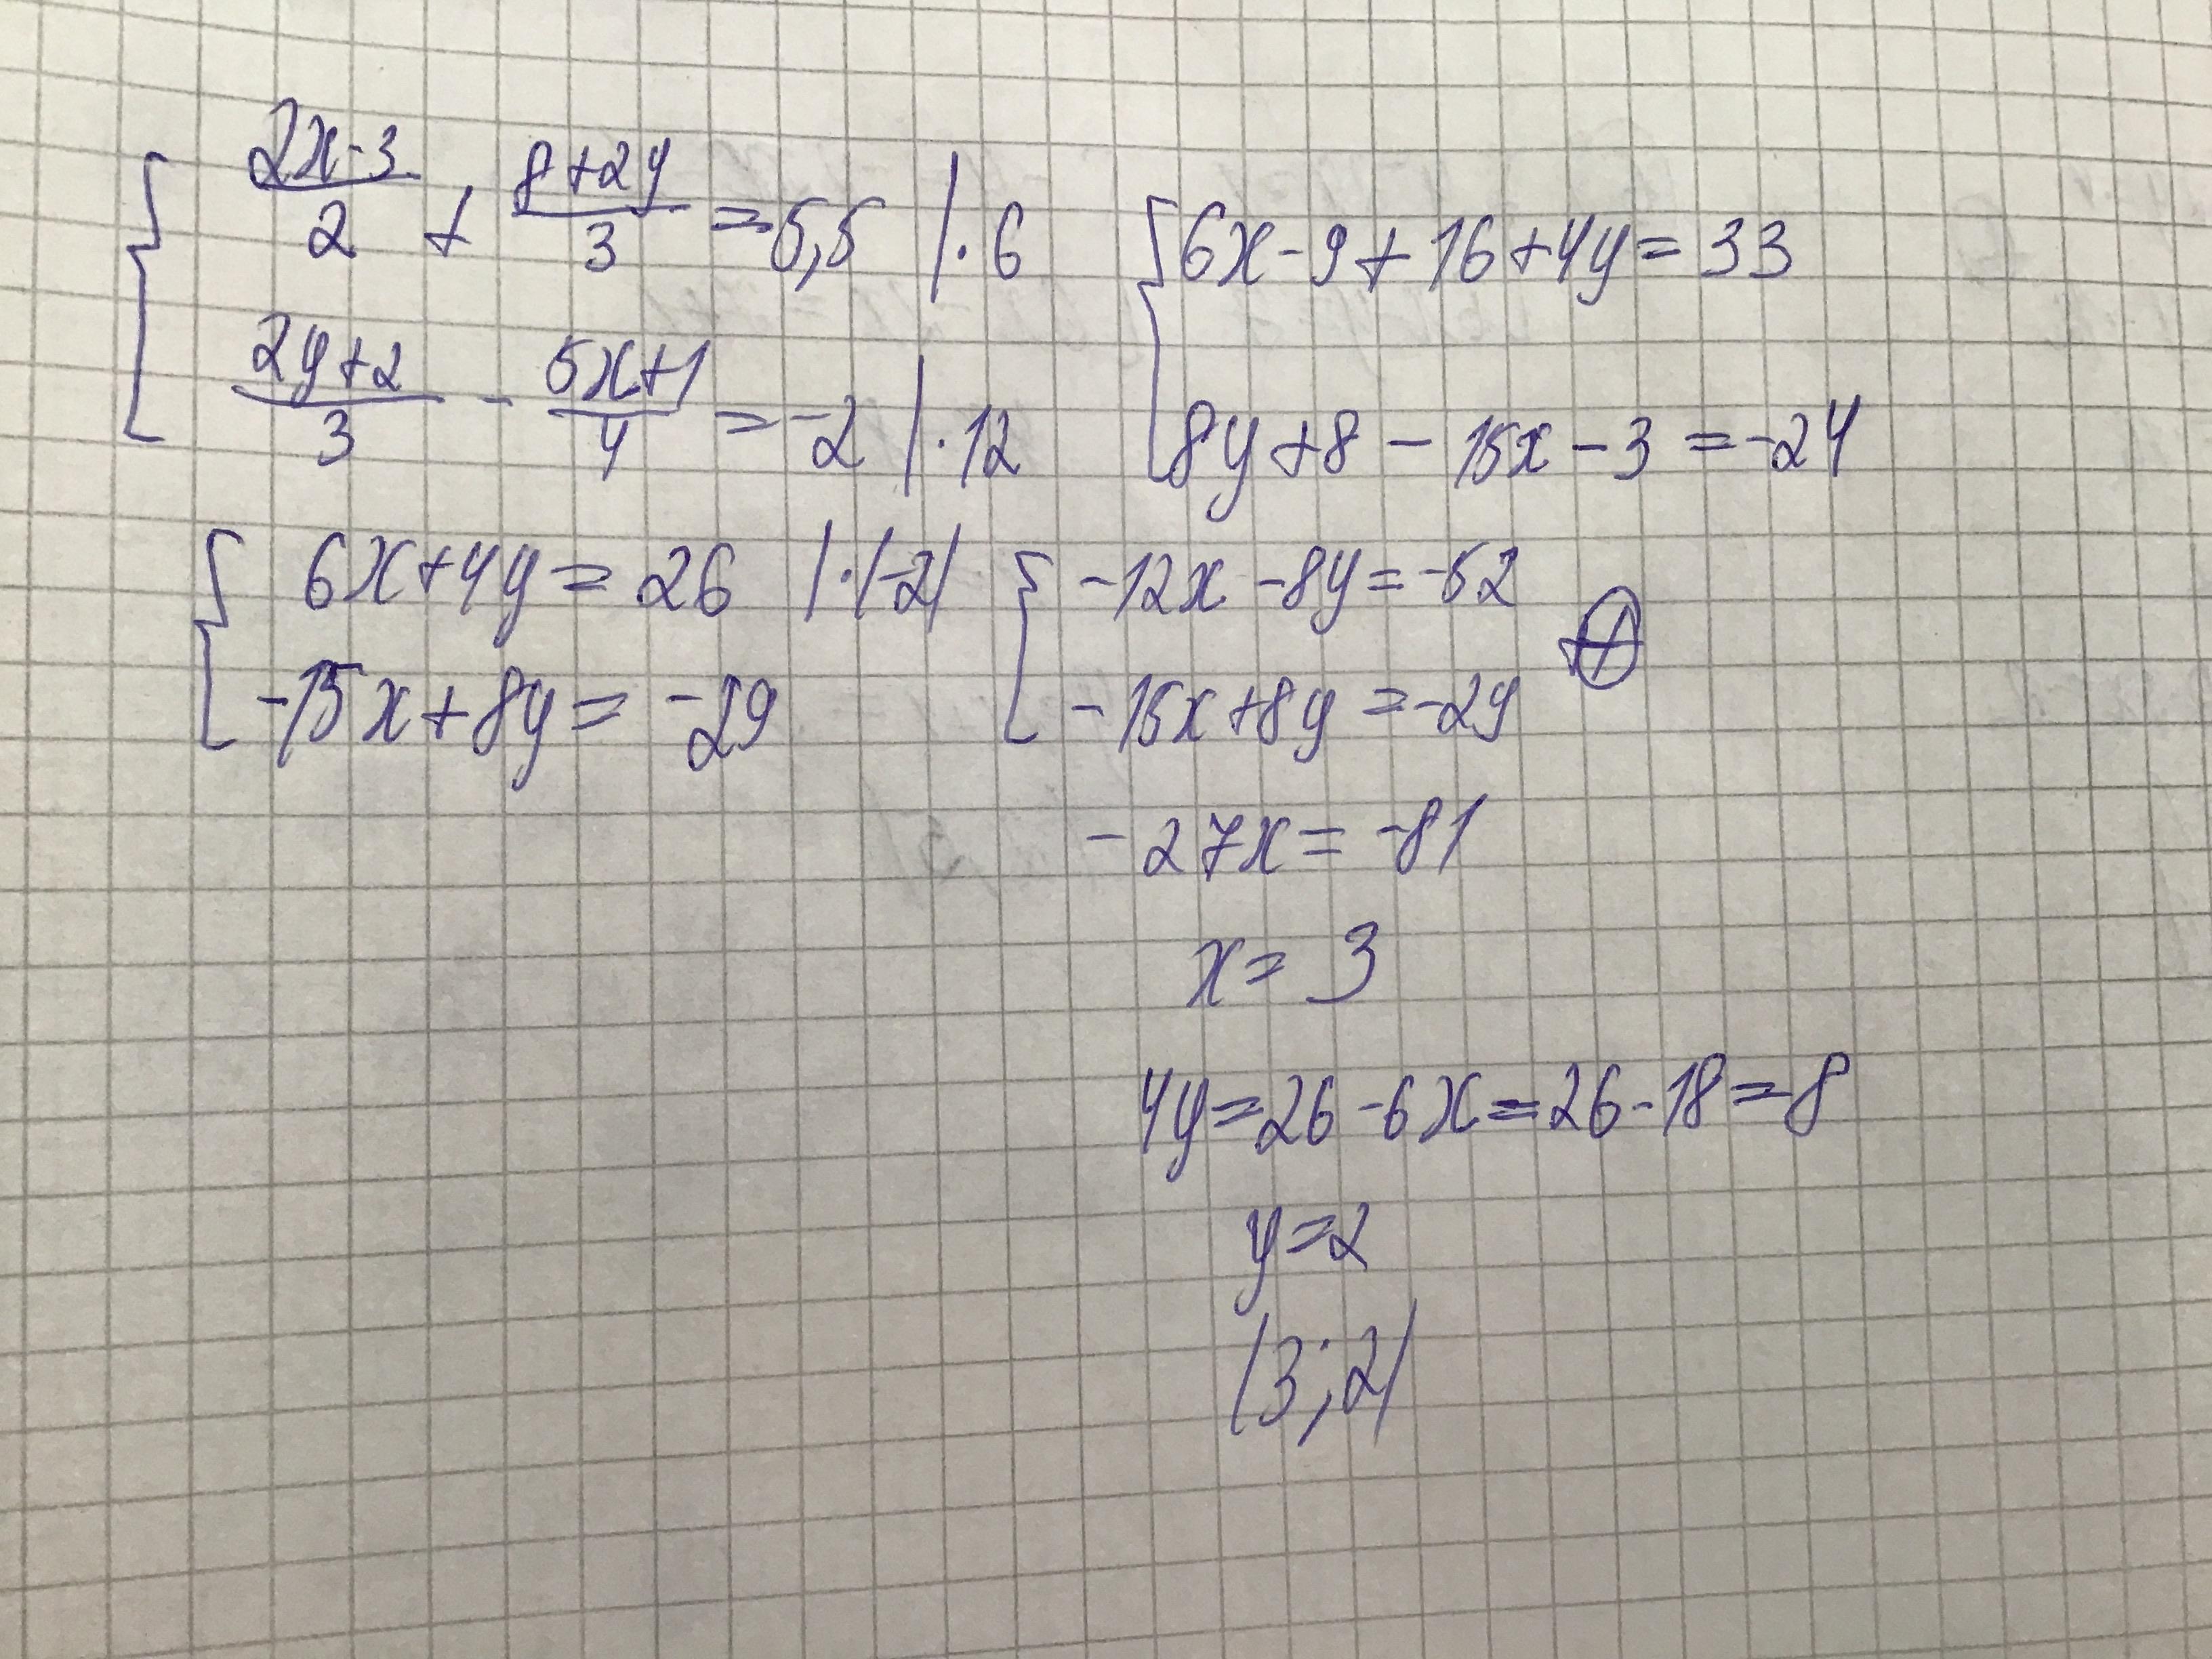 { (2x-3)/2 + (8+2y)/3 = 5,5 | · 6
(2y+2)/3 - (5x+1)/4 = -2 | · 12
{ 6x - 9 + 16 + 4y = 33
8y + 8 - 15x - 3 = -24
{ 6x + 4y = 26 | · (-2)
-15x + 8y = -29
{ -12x - 8y = -52
-15x + 8y = -29 ⊕
-27x = -81
x = 3
4y = 26 - 6x = 26 - 18 = 8
y = 2
(3; 2)